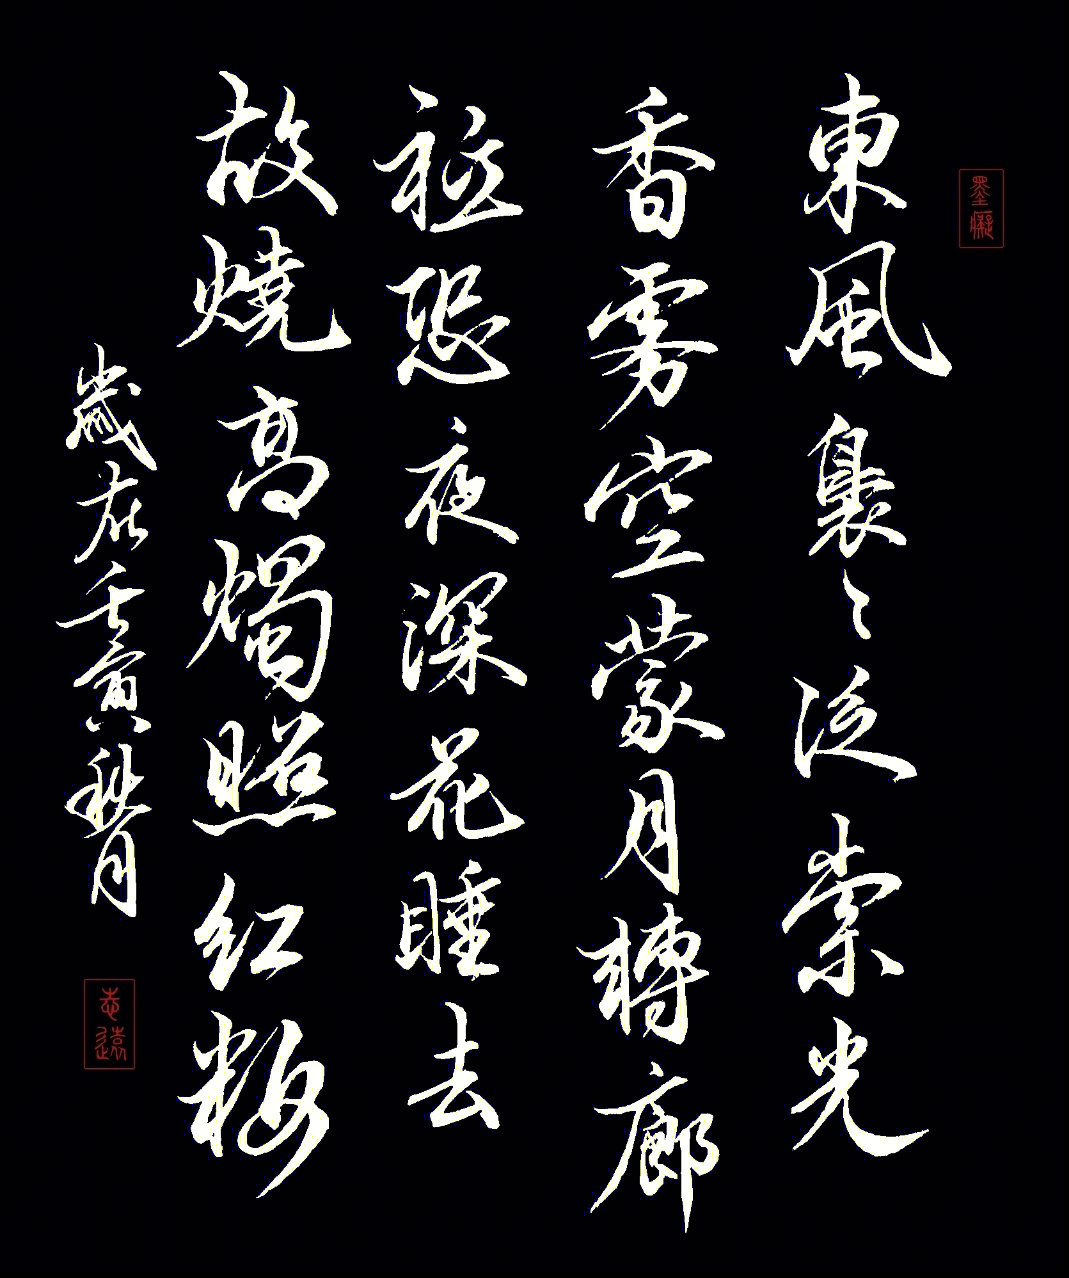 墨癡
東風裊々泛崇光
香雾空蒙月轉廊
祇恐夜深花睡去
故燒高燭照红粧
歲在壬寅秋月
志遠